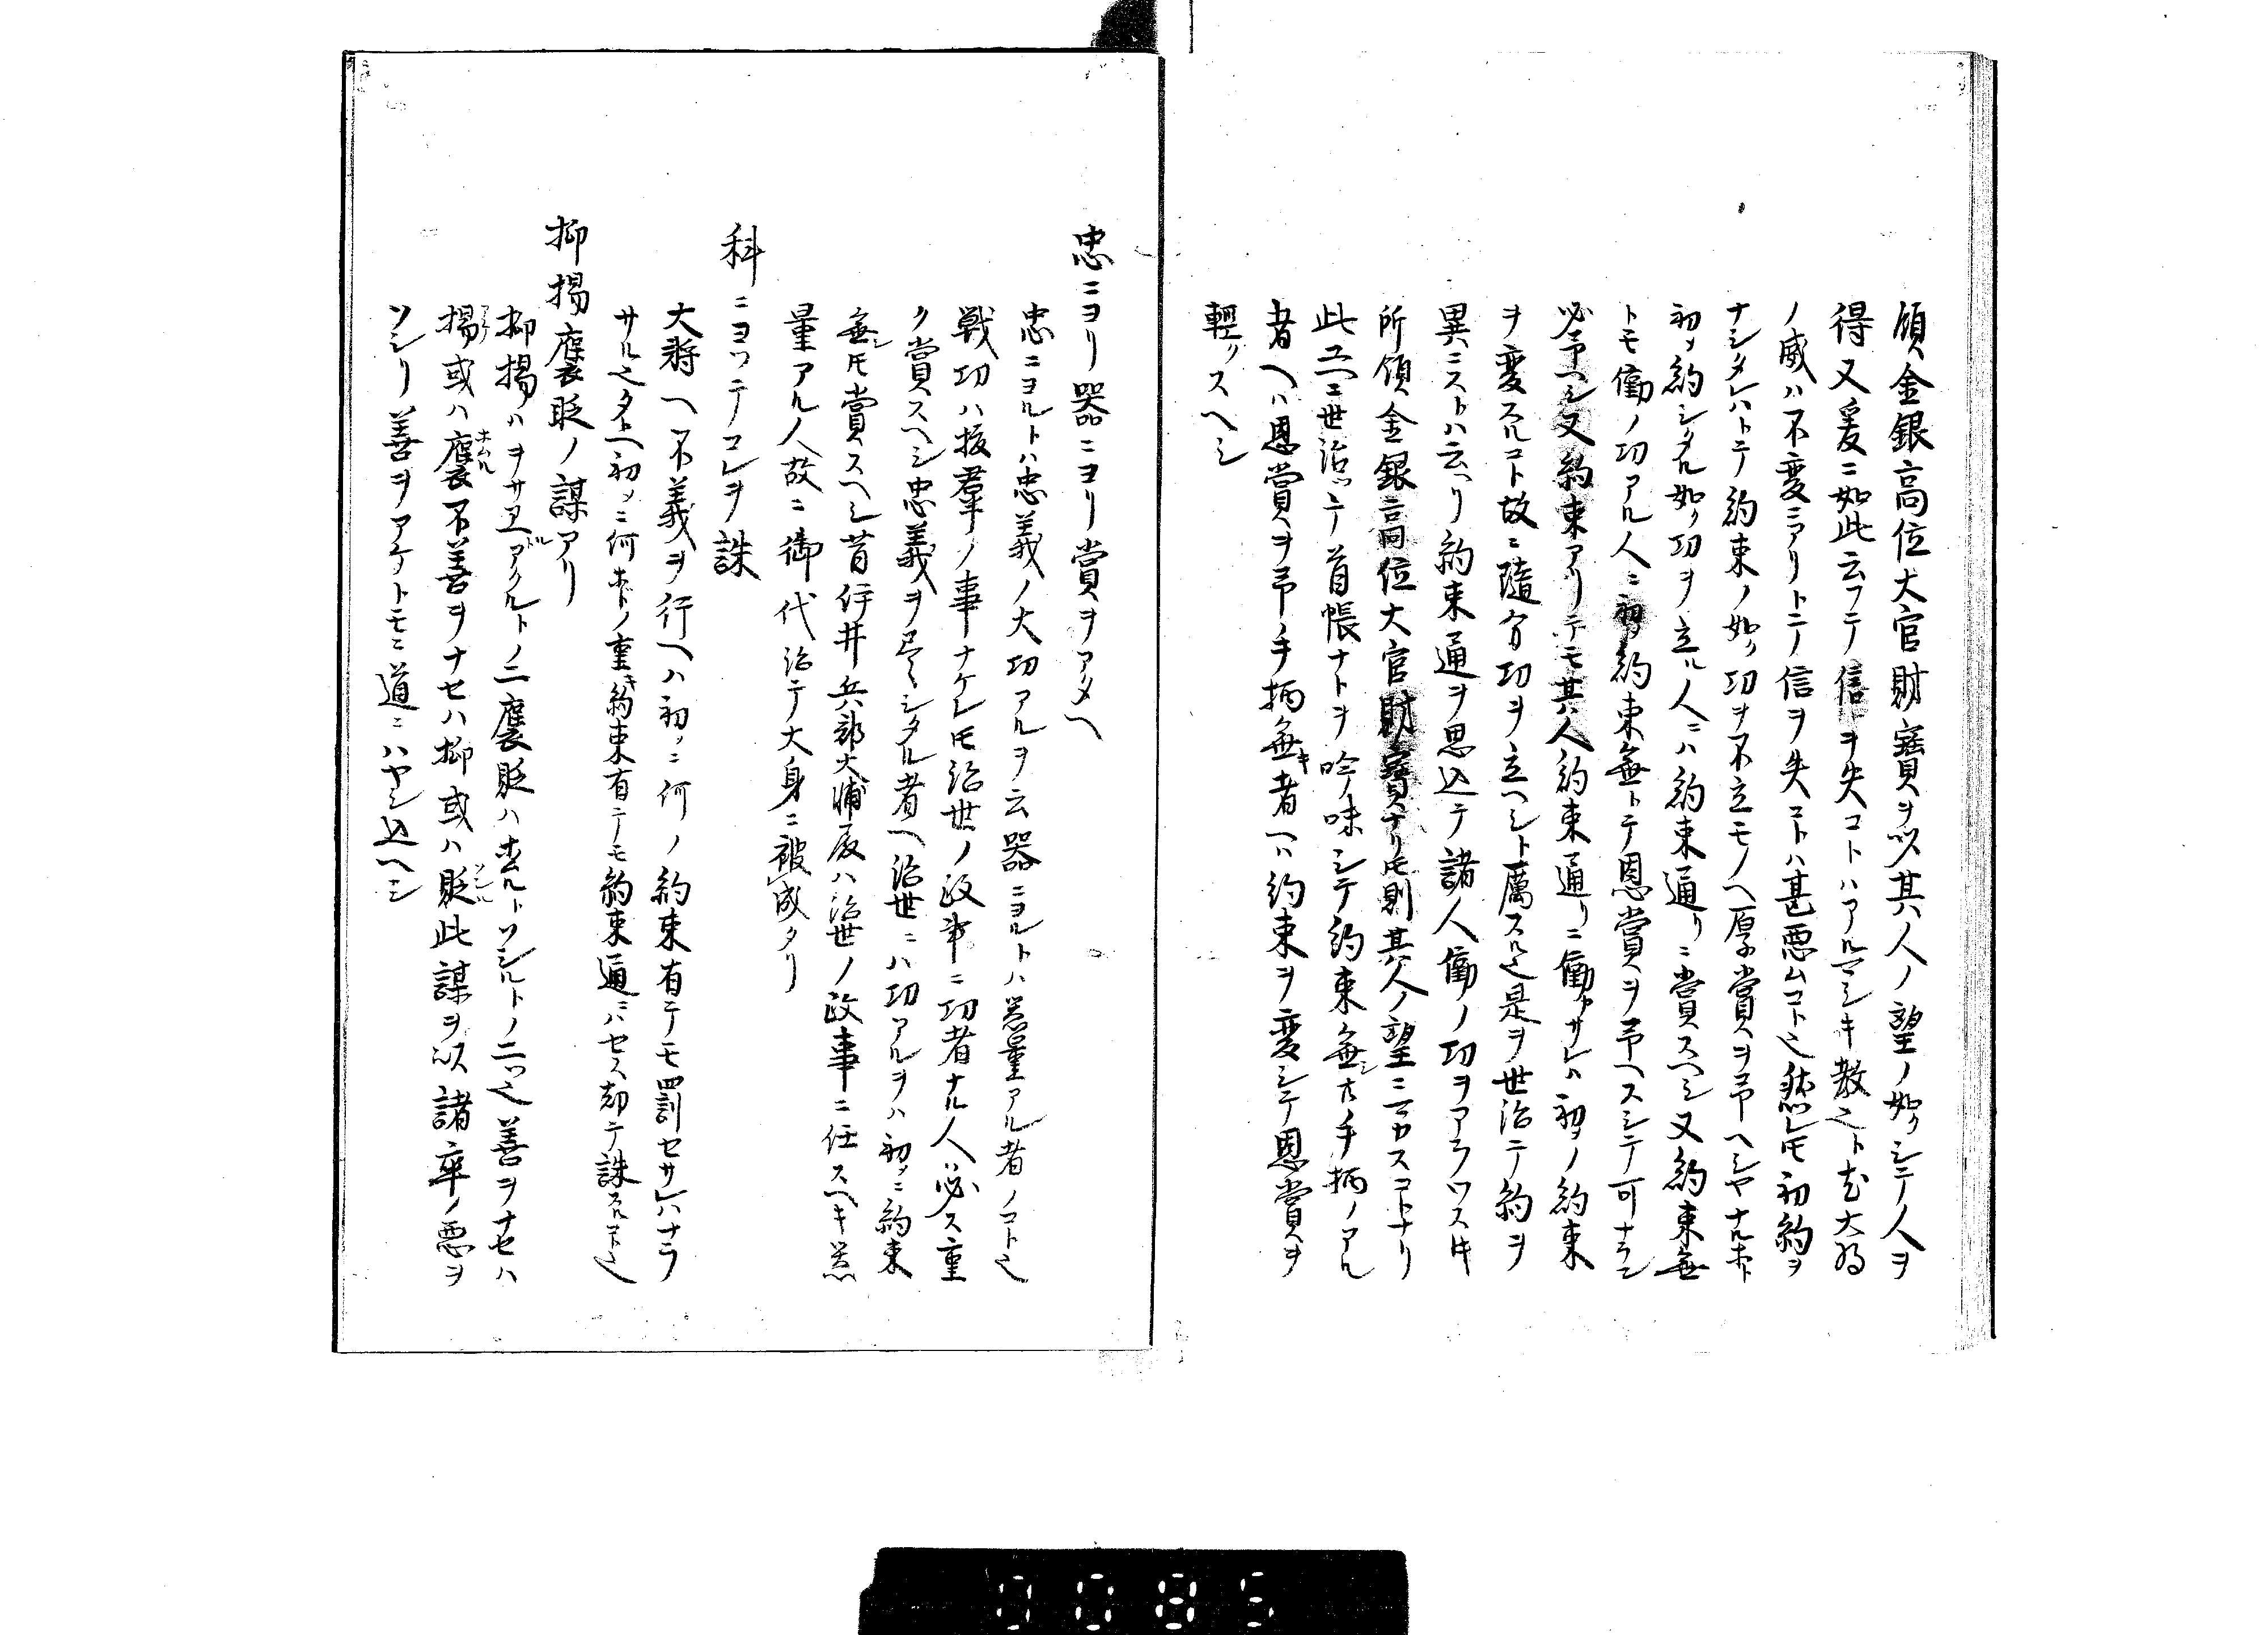 領金銀高位大官財寳ヲ以其人ノ望ノ如クシテ人ヲ
得又爰ニ如此云フテ信ヲ失コトハアルマシキ教也ト尤大将
ノ威ハ不変ニアリトテノ信ヲ失コトハ甚悪ムコト也然レ𪜈初約ヲ
ナシタレハトテ約束ノ如ク功ヲ不立モノヘ厚賞ヲ弔ヘシヤナルホト
初メ約シタル如ク功ヲ立ル人ニハ約束通リニ賞スヘシ又約束無
トモ働ノ功アル人ニ初約束無トテ恩賞ヲ弔ヘスシテ可ナランヤ
必弔ヘシ又約束アリテモ其人約束通リニ働カサレハ初メノ約束
ヲ変スルコト故ニ隨分功ヲ立ヘシト厲スル也是ヲ世治テ約ヲ
異ニストハ云ヘリ約束通ヲ思込テ諸人働ノ功ヲアラワス時
所領金銀高位大官財寳ナリ𪜈則其人ノ望ニマカスコトナリ
此ユヘニ世治ツテ首帳ナトヲ吟味シテ約束無シ𪜈手柄ノアル
者ヘハ恩賞ヲ弔手柄無キ者ヘハ約束ヲ変シテ恩賞ヲ
輕クスヘシ
忠ニヨリ器ニヨリ賞ヲアタヘ
忠ニヨルトハ忠義ノ大功アルヲ云器ニヨルトハ器量アル者ノコト也
戦功ハ抜羣ノ事ナケレ𪜈治世ノ政事ニ功者ナル人ハ必ス重
ク賞スヘシ忠義ヲ尽シタル者ヘ治世ニハ功アルヲハ初メニ約束
無シ𪜈賞スヘシ昔伊井兵部大輔殿ハ治世ノ政事ニ任スヘキ器
量アル人故ニ御代治テ大身ニ被成タリ
科ニヨツテコレヲ誅
大将ヘ不義ヲ行ヘハ初メニ何ノ約束有テモ罰セサレハナラ
サル也タトヘ初メニ何ホドノ重キ約束有テモ約束通ニハセス却テ誅スルコト也
抑揚襃貶ノ謀アリ
抑揚ハヲサユルアクルトノ二襃貶ハホムルトソシルトノ二ツ也善ヲナセハ
揚或ハ襃不善ヲナセハ抑或ハ貶此謀ヲ以諸卒ノ悪ヲ
ソシリ善ヲアケトモニ道ニハヤシ込ヘシ
0085